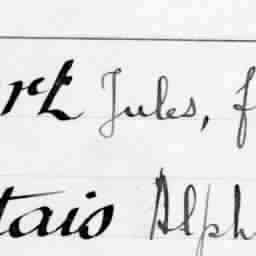 rt Jules, f
tais Alph